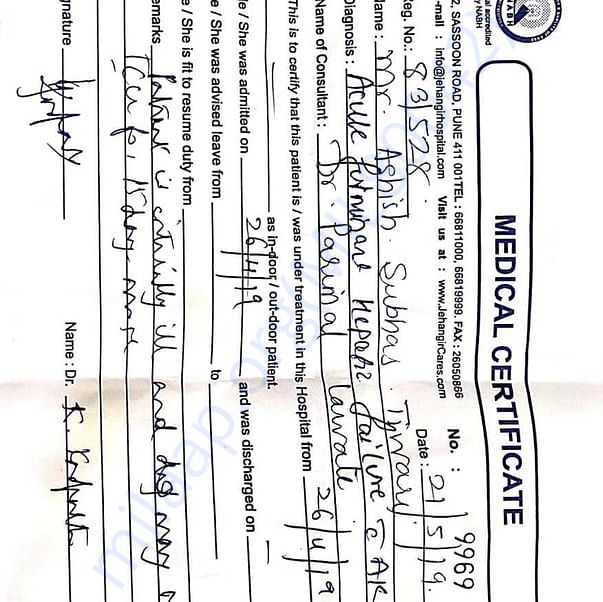 MEDICAL CERTIFICATE
NABH
2, SASSOON ROAD, PUNE 411 001TEL : 66811000, 66819999. FAX : 26050866
-mail : info@jehangirhospital.com Visit us at : www.JehangirCares.com
No. : 9969
eg. No.: 83/528
Date : 21/5/19.
ame : Mr. Ashish. Subhas. Tiwari
Diagnosis : Acute fulminant Hepatic failure c AK
Name of Consultant : Dr. Parimal Lawate
This is to certify that this patient is / was under treatment in this Hospital from 26/4/19
as in-door / out-door patient.
e / She was admitted on 26/4/19 and was discharged on —
e / She was advised leave from to
e / She is fit to resume duty from
emarks Patient is critically ill and may
ICU 15 days more
gnature
Name : Dr. K.
milaap.org